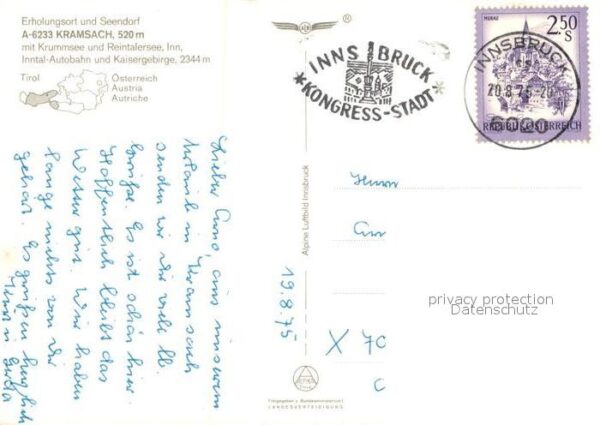 Erholungsort und Seendorf
A-6233 KRAMSACH, 520 m
mit Krummsee und Reintalersee, Inn,
Inntal-Autobahn und Kaisergebirge, 2344 m
Tirol
Österreich
Austria
Autriche
INNSBRUCK
*KONGRESS-STADT*
MURAU
2.50
S
REPUBLIK ÖSTERREICH
INNSBRUCK
20.8.75-20
6020
Lieber Arno, aus unserem
Urlaub in Kramsach
senden wir dir viele lb.
Grüße. Es ist schön hier.
Hoffentlich bleibt das
Wetter gut. Wir haben
lange nichts von dir
gehört. Es grüßen herzlich
19.8.75
Alpine Luftbild Innsbruck
Herrn
X 70
privacy protection
Datenschutz
Freigegeben v. Bundesministerium f.
LANDESVERTEIDIGUNG